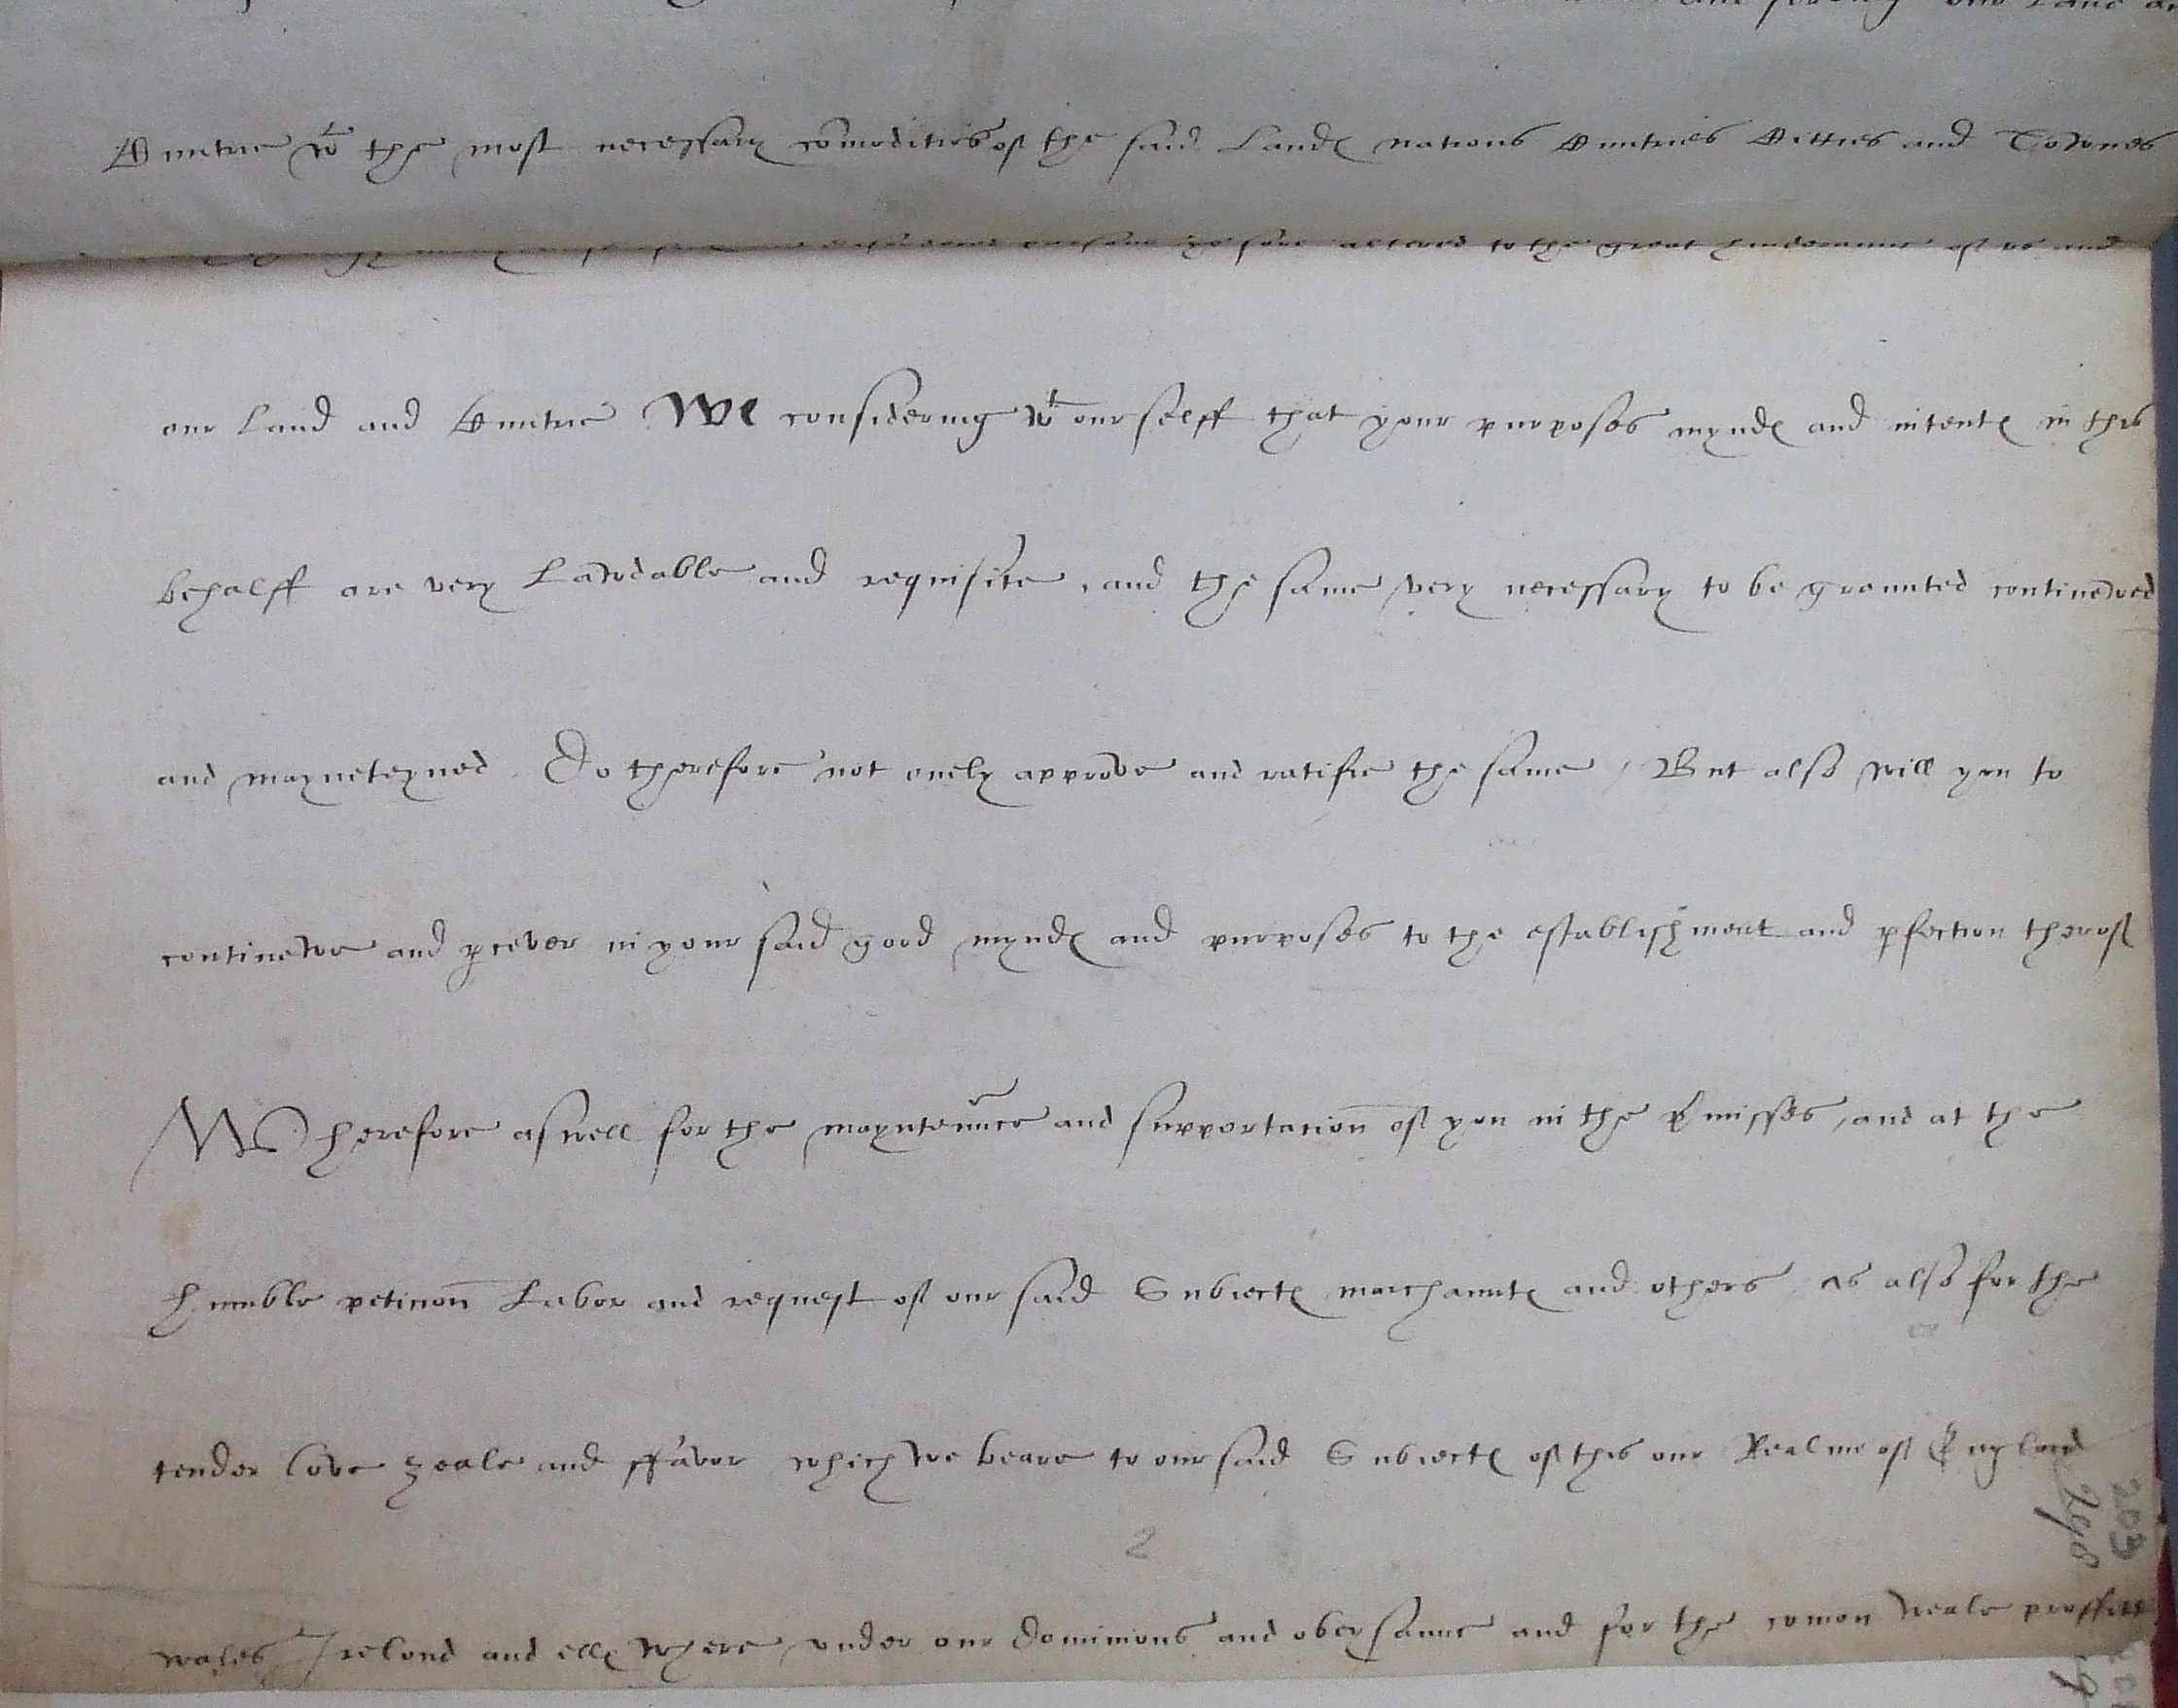 our Land a
Cuntrie wt the most necessary comodities of the said Landes nations Cuntries Citties and Townes
altered to the great hinderaunce of us and
our Land and Cuntrie We considering wt our selff that your purposes myndes and intentes in this
behalff are very Lawdable and requisite, and the same very necessary to be graunted continewed
and mayneteyned Do therefore not onely approve and ratifie the same / But also will you to
continewe and pcever in your said good myndes and purposes to the establishment and pfection therof
Wherefore aswell for the mayntenñce and supportacion of you in the pmisses, and at the
humble peticion Labor and request of our said Subiectes marchauntes and others as also for the
tender love zeale and ffavor which we beare to our said Subiectes of this our Realme of England
2
203
wales Ireland and elles where under our dominions and obeysaunce and for the comon weale proffitt